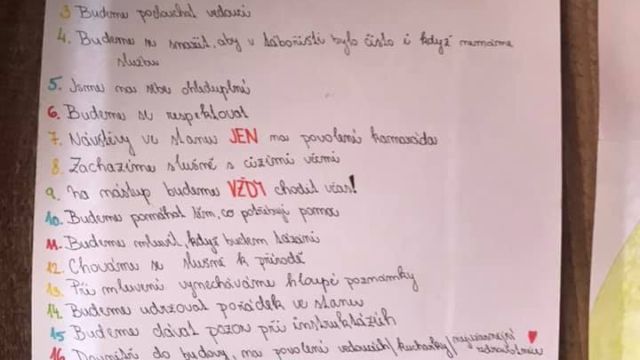 3 Budeme poslouchat vedoucí
4. Budeme se snažit, aby v tábořišti bylo čisto i když nemáme
službu
5. Jsme na sebe ohleduplní
6. Budeme se respektovat
7. Návštěvy ve stanu JEN na povolení kamaráda
8. Zacházíme slušně s cizími věcmi
9. na nástup budeme VŽDY chodit včas!
10. Budeme pomáhat těm, co potřebují pomoc
11. Budeme mluvit, když budem tázáni
12. Chováme se slušně k přírodě
13. Při mluvení vynecháváme hloupé poznámky
14. Budeme udržovat pořádek ve stanu
15 Budeme dávat pozor při instruktážích
16 do budovy, na povolení vedoucích/kuchařky/